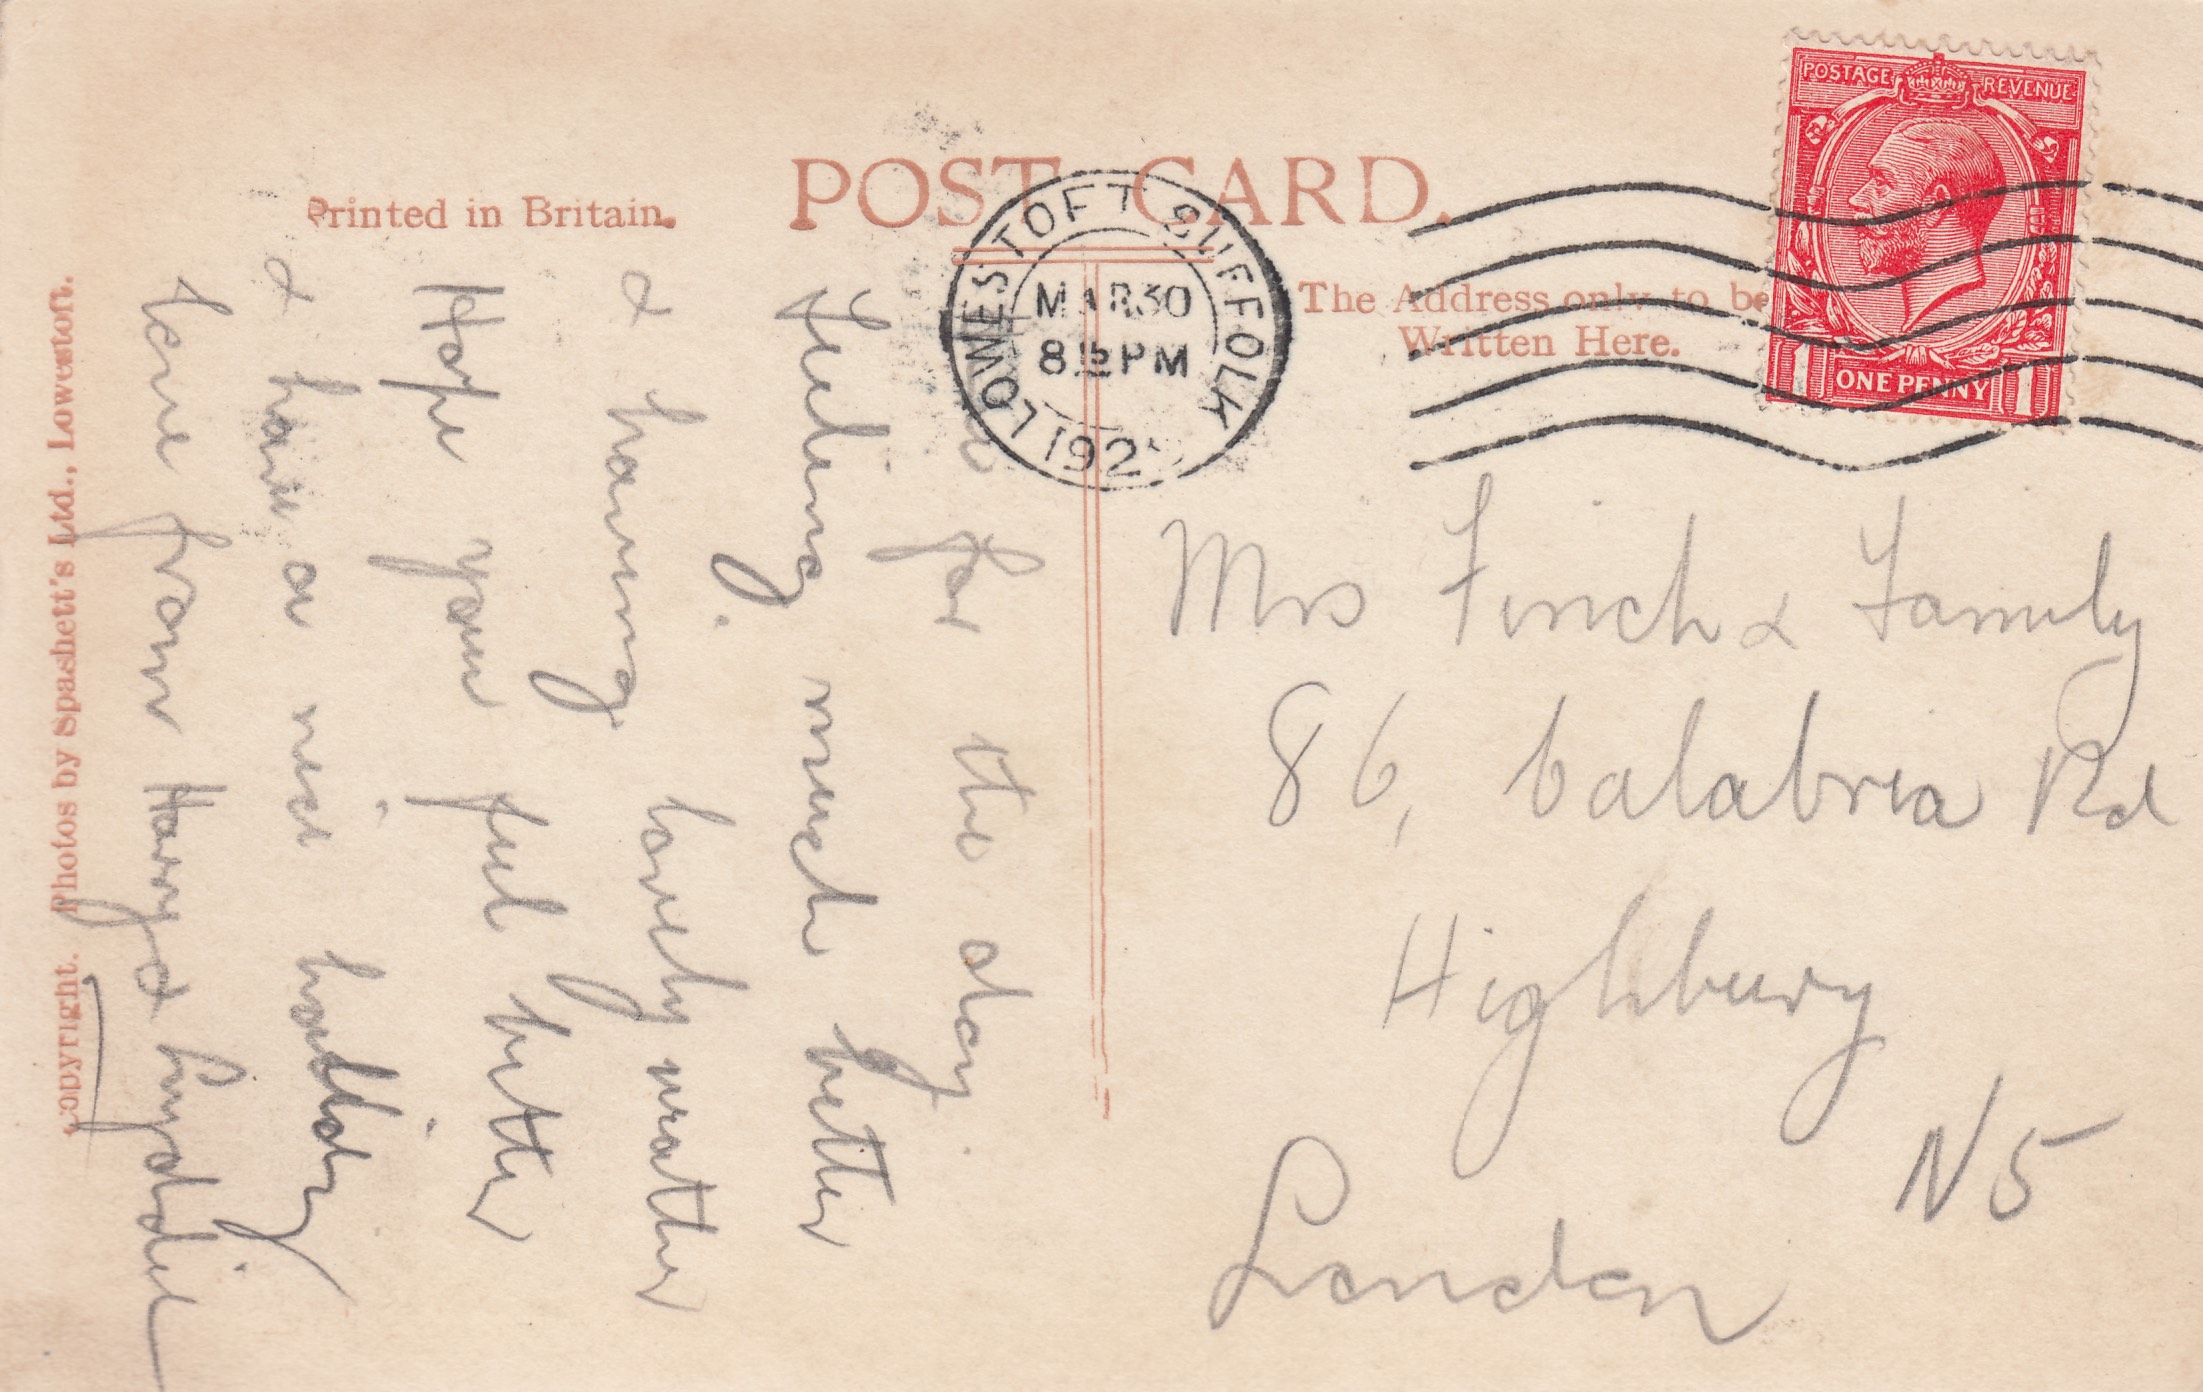 POST CARD.
Printed in Britain.
The Address only to be
Written Here.
LOWESTOFT SUFFOLK
MAR 30
8 15 PM
192
POSTAGE REVENUE
1 ONE PENNY 1
for the day.
Feeling much better
& having lovely weather
Hope you feel better
& have a nice holiday
Love from Harry &
Mrs Finch & Family
86, Calabria Rd
Highbury
N5
London
Copyright. Photos by Spashett's Ltd., Lowestoft.